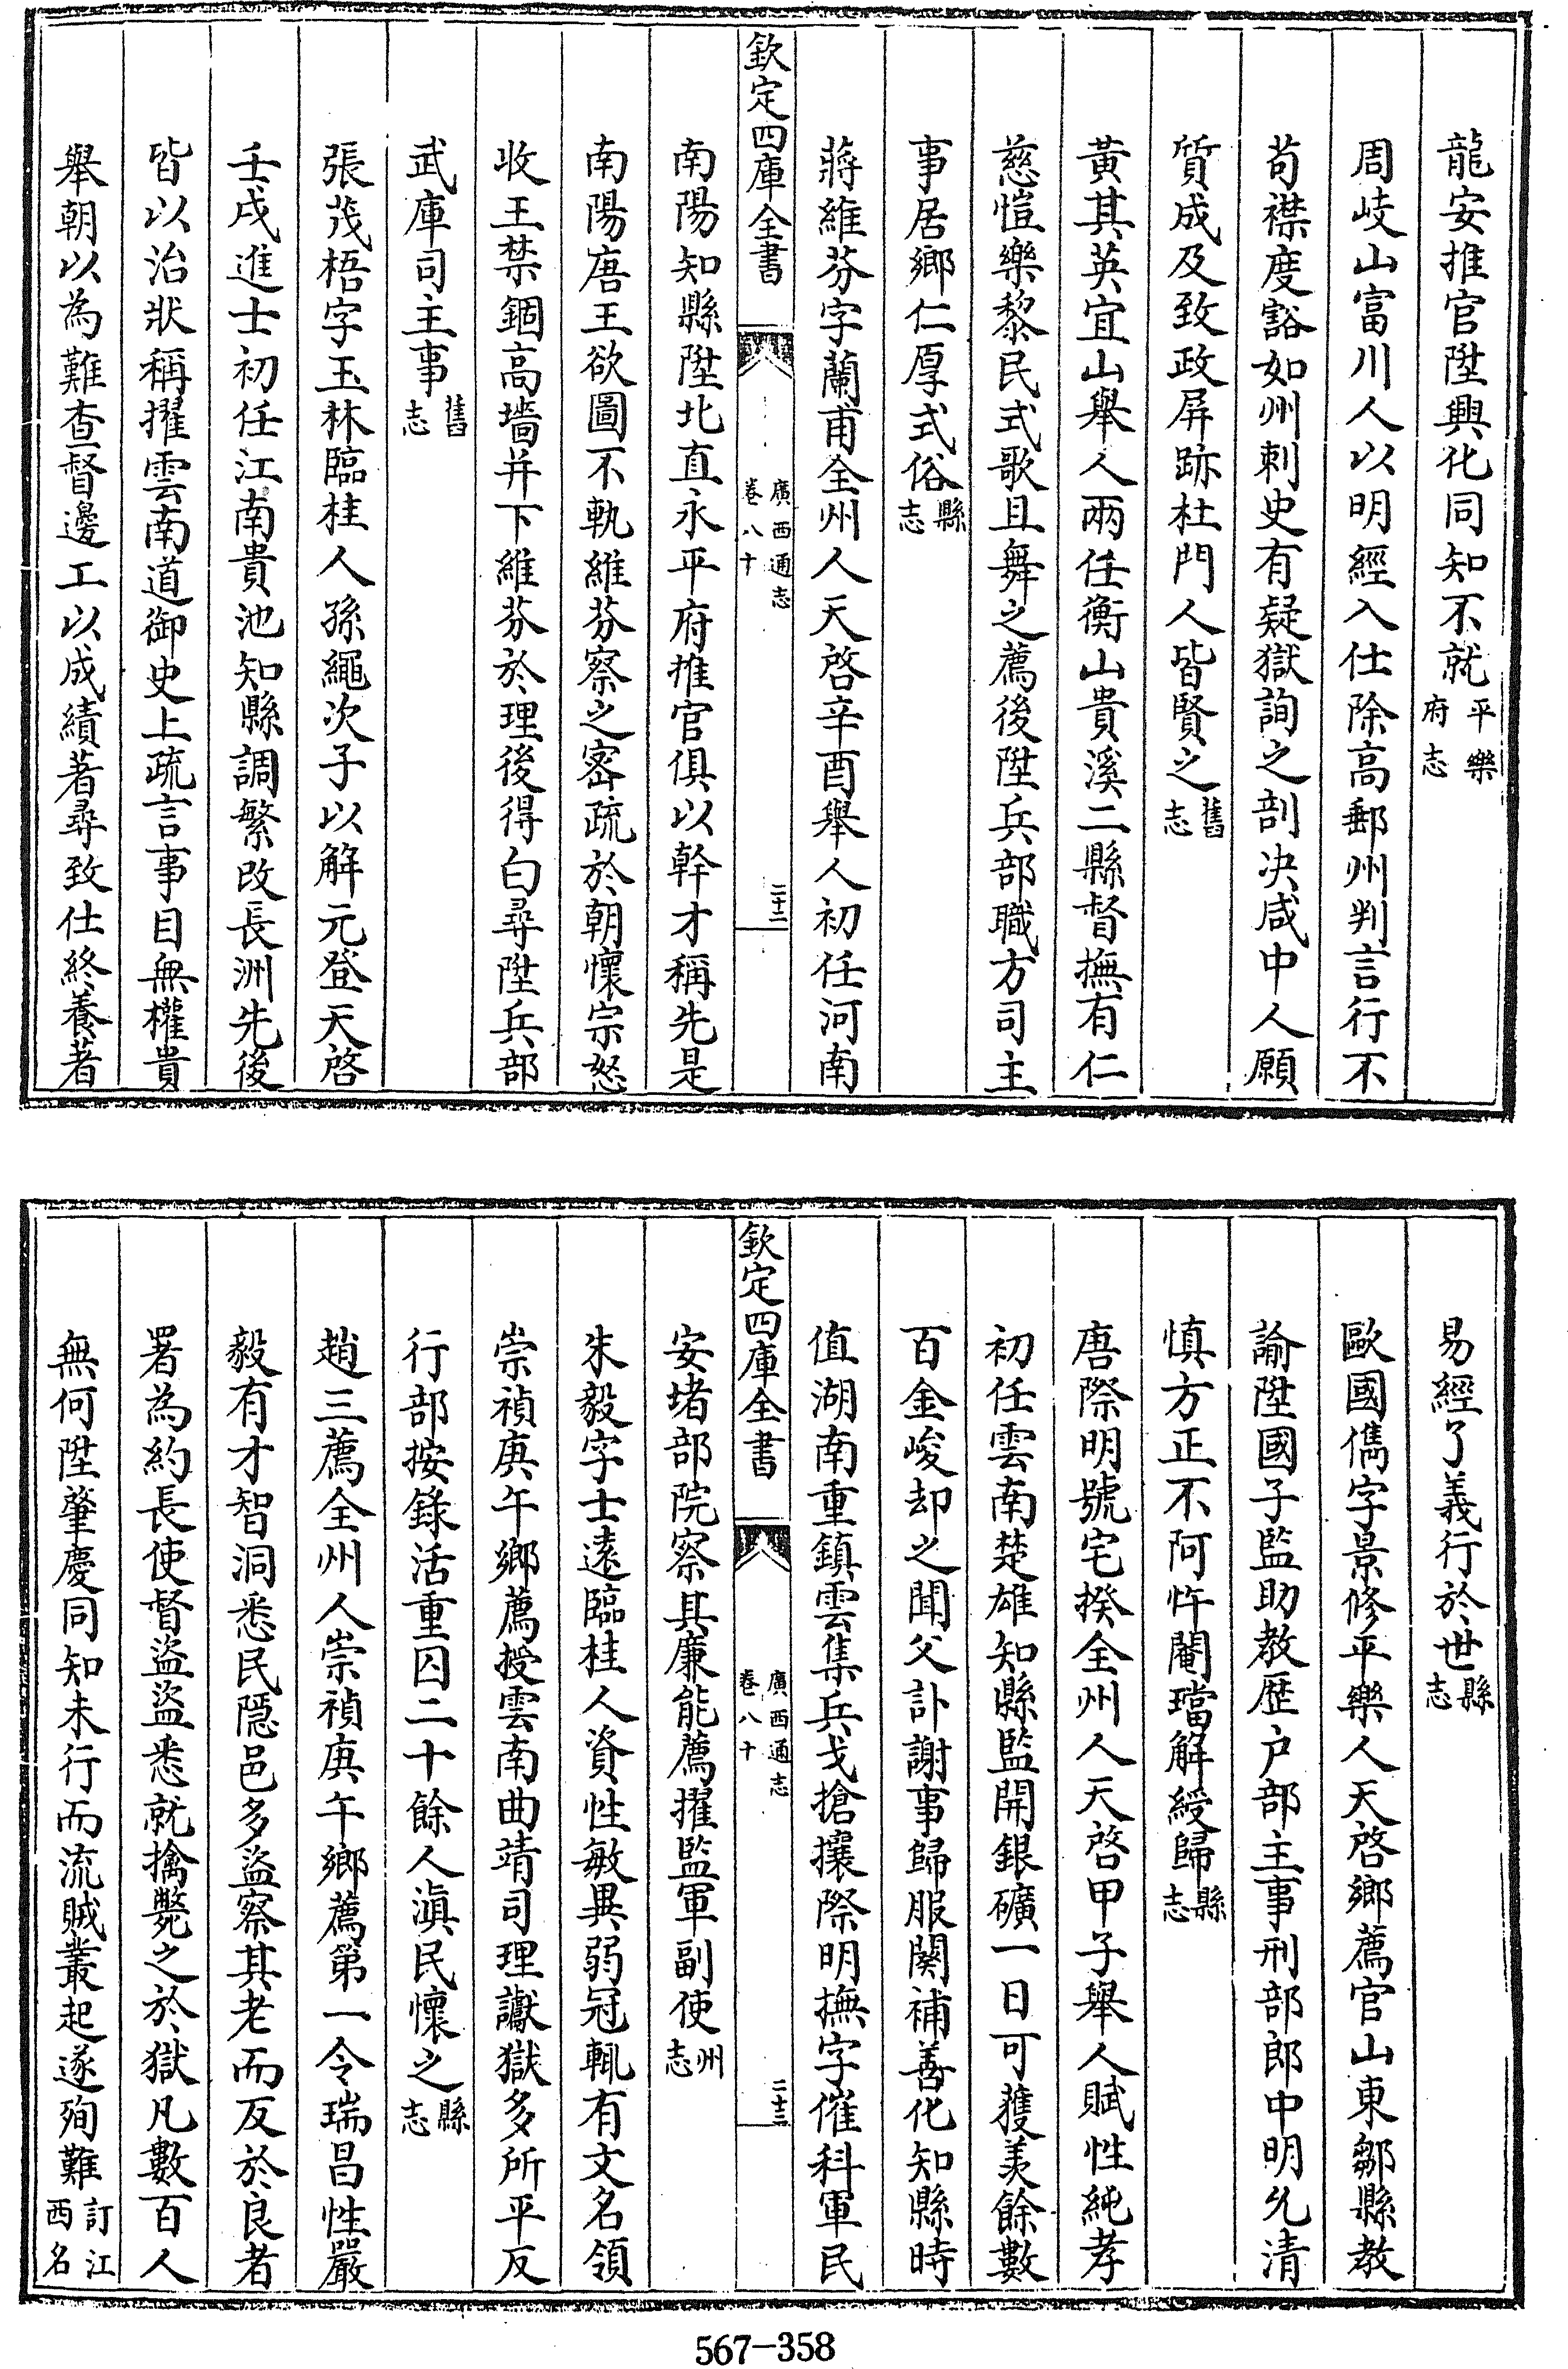 龍安推官陞興化同知不就平樂府志
周岐山富川人以明經入仕除高郵州判言行不
苟襟度豁如州刺史有疑獄詢之剖決咸中人願
質成及致政屏跡杜門人皆賢之舊志
黃其英宜山舉人兩任衡山貴溪二縣督撫有仁
慈愷樂黎民式歌且舞之薦後陞兵部職方司主
事居鄉仁厚式俗縣志
蔣維芬字蘭甫全州人天啓辛酉舉人初任河南
欽定四庫全書 廣西通志 卷八十 二十二
南陽知縣陞北直永平府推官俱以幹才稱先是
南陽唐王欲圖不軌維芬察之密疏於朝懷宗怒
收王禁錮高墻并下維芬於理後得白尋陞兵部
武庫司主事舊志
張茂梧字玉林臨桂人孫繩次子以解元登天啓
壬戌進士初任江南貴池知縣調繁改長洲先後
皆以治狀稱擢雲南道御史上疏言事目無權貴
舉朝以為難查督邊工以成績著尋致仕終養著
易經了義行於世縣志
歐國儁字景修平樂人天啓鄉薦官山東鄒縣教
諭陞國子監助教歷户部主事刑部郎中明允清
慎方正不阿忤閹璫解綬歸縣志
唐際明號宅揆全州人天啓甲子舉人賦性純孝
初任雲南楚雄知縣監開銀礦一日可獲羨餘數
百金峻却之聞父訃謝事歸服闋補善化知縣時
值湖南重鎮雲集兵戈搶攘際明撫字催科軍民
欽定四庫全書 廣西通志 卷八十 二十三
安堵部院察其廉能薦擢監軍副使州志
朱毅字士遠臨桂人資性敏異弱冠輒有文名領
崇禎庚午鄉薦授雲南曲靖司理讞獄多所平反
行部按錄活重囚二十餘人滇民懷之縣志
趙三薦全州人崇禎庚午鄉薦第一令瑞昌性嚴
毅有才智洞悉民隱邑多盜察其老而反於良者
署為約長使督盜盜悉就擒斃之於獄凡數百人
無何陞肇慶同知未行而流賊叢起遂殉難訂江西名
567-358